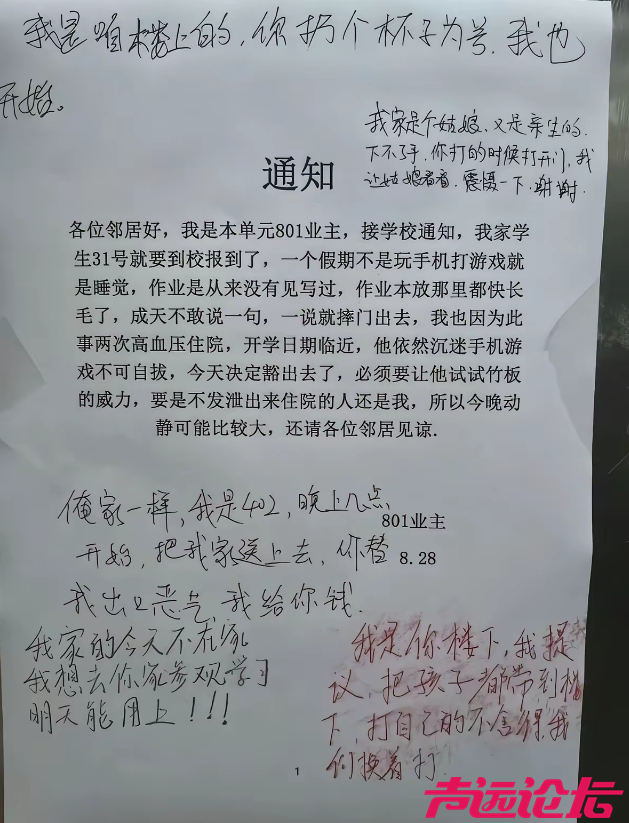 我是咱楼上的,你扔个杯子为号.我也
开始。
我家是个姑娘、又是亲生的.
下不了手,你打的时候打开门,我
让姑娘看看.震慑一下.谢谢.
通知
各位邻居好，我是本单元801业主，接学校通知，我家学
生31号就要到校报到了，一个假期不是玩手机打游戏就
是睡觉，作业是从来没有见写过，作业本放那里都快长
毛了，成天不敢说一句，一说就摔门出去，我也因为此
事两次高血压住院，开学日期临近，他依然沉迷手机游
戏不可自拔，今天决定豁出去了，必须要让他试试竹板
的威力，要是不发泄出来住院的人还是我，所以今晚动
静可能比较大，还请各位邻居见谅.
801业主
8.28
俺家一样,我是402,晚上几点
开始,把我家送上去,你替
我出口恶气,我给你钱.
我家的今天不在家
我想去你家参观学习
明天能用上!!!
我是你楼下,我提
议,把孩子都带到楼
下,打自己的不舍得,我
们换着打
1
声远论坛